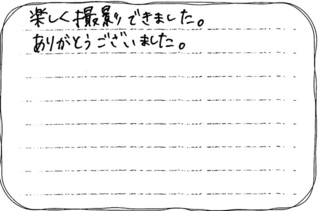 楽しく撮影できました。
ありがとうございました。